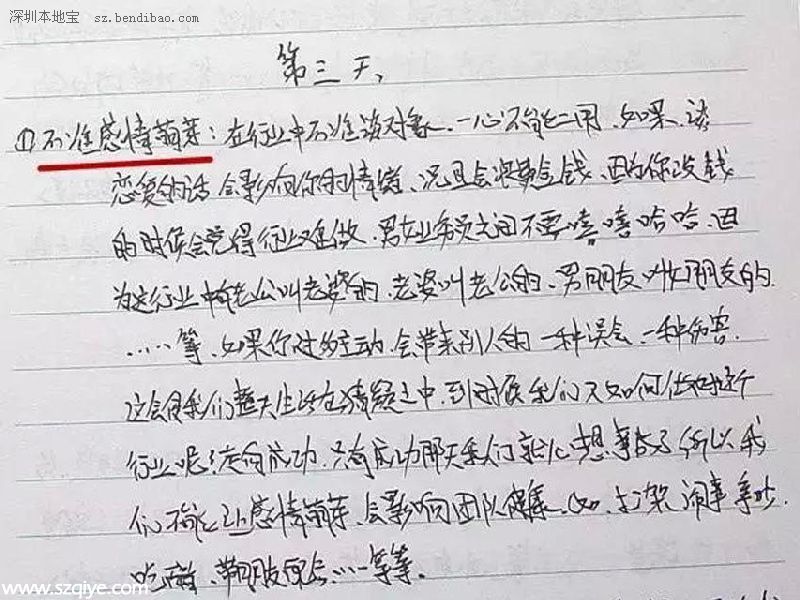 深圳本地宝 sz.bendibao.com
第三天、
①不准感情萌芽：在行业中不准谈对象、一心不能二用、如果、谈
恋爱的话会影响你的情绪、况且会浪费金钱、因为你没钱
的时候会觉得行业难做、男女业务员之间不要嘻嘻哈哈、因
为这行业中有老公叫老婆的、老婆叫老公的、男朋友叫女朋友的、
……等、如果你过多主动、会带来别人的一种误会、一种伤害、
这会使我们整天生活在猜疑之中、到时候我们又如何做好这个
行业呢？走向成功、只有成功那天我们就心想事成了所以我
们不能让感情萌芽、会影响团队健康、如、打架闹事争吵、
吃醋、带朋友回会……等等、
www.szqiye.com